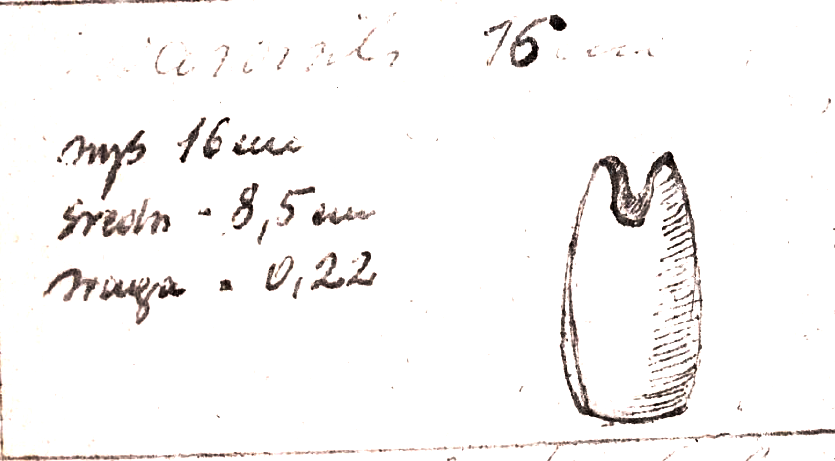 16 cm
wys 16 cm
średn - 8,5 cm
waga - 0,22